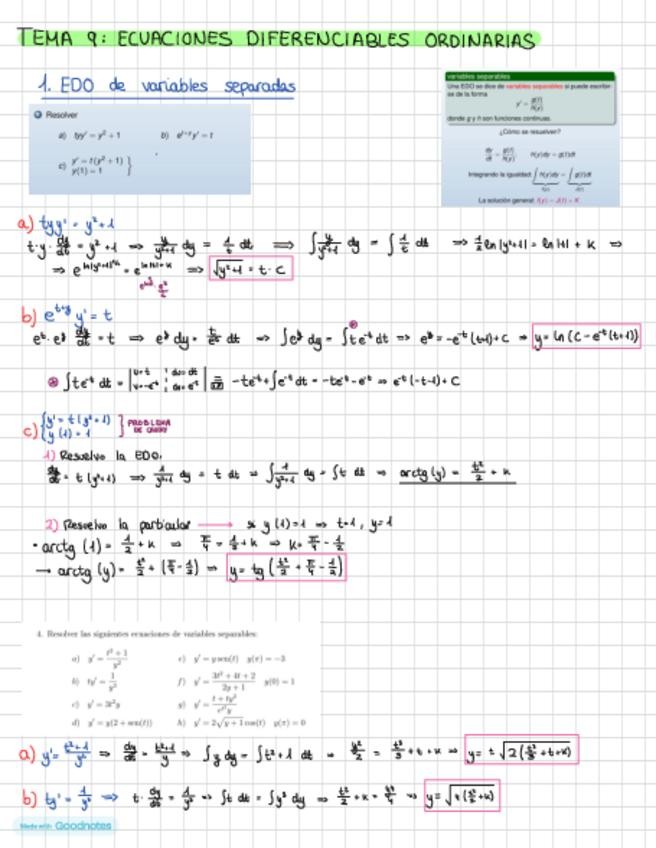 TEMA 9: ECUACIONES DIFERENCIABLES ORDINARIAS
1. EDO de variables separadas
Resolver
a) tyy' = y² + 1 b) e^{t+y} y' = t
c) y' = t(y² + 1) }
y(1) = 1
variables separables
Una EDO se dice de variables separables si puede escribir-
se de la forma
y' = g(t)/h(y)
donde g y h son funciones continuas.
¿Cómo se resuelven?
dy/dt = g(t)/h(y) h(y)dy = g(t)dt
Integrando la igualdad ∫h(y)dy = ∫g(t)dt
La solución general:
a) tyy' = y²+1
t·y·dy/dt = y²+1 ⇒ y/(y²+1) dy = 1/t dt ⇒ ∫ y/(y²+1) dy = ∫ 1/t dt ⇒ 1/2 ln|y²+1| = ln|t| + K ⇒
⇒ √(y²+1) = t·C
b) e^{t+y} y' = t
e^t·e^y dy/dt = t ⇒ e^y dy = t/e^t dt ⇒ ∫e^y dy = ∫te^{-t} dt ⇒ e^y = -e^{-t}(t+1)+C ⇒ y = ln(C-e^{-t}(t+1))
∫te^{-t} dt = -te^{-t}+∫e^{-t} dt = -te^{-t}-e^{-t} ⇒ e^{-t}(-t-1)+C
c) {y' = t(y²+1) } PROBLEMA
{y(1) = 1 DE CAUCHY
1) Resuelvo la EDO.
dy/dt = t(y²+1) ⇒ 1/(y²+1) dy = t dt ⇒ ∫ 1/(y²+1) dy = ∫t dt ⇒ arctg(y) = t²/2 + K
2) Resuelvo la particular → si y(1)=1 ⇒ t=1, y=1
• arctg(1) = 1/2 + K ⇒ π/4 = 1/2 + K ⇒ K = π/4 - 1/2
→ arctg(y) = t²/2 + (π/4 - 1/2) ⇒ y = tg(t²/2 + π/4 - 1/2)
4. Resolver las siguientes ecuaciones de variables separables:
a) y' = (t²+1)/y² e) y' = y sen(t) y(π) = -3
b) ty' = 1/y³ f) y' = (3t² + 4t + 2)/(2y + 1) y(0) = 1
c) y' = 3t²y g) y' = (t + ty²)/
d) y' = y(2 + sen(t)) h) y' = 2√(y + 1) cos(t) y(π) = 0
a) ⇒ ∫y dy = ∫t²+1 dt ⇒ y²/2 = t³/3 + t + K ⇒ y = ±√(2(t³/3+t+K))
b) ty' = 1/y³ ⇒ t·dy/dt = 1/y³ ⇒ ∫t dt = ∫y³ dy ⇒ t²/2 + K = y⁴/4 ⇒
Made with Goodnotes